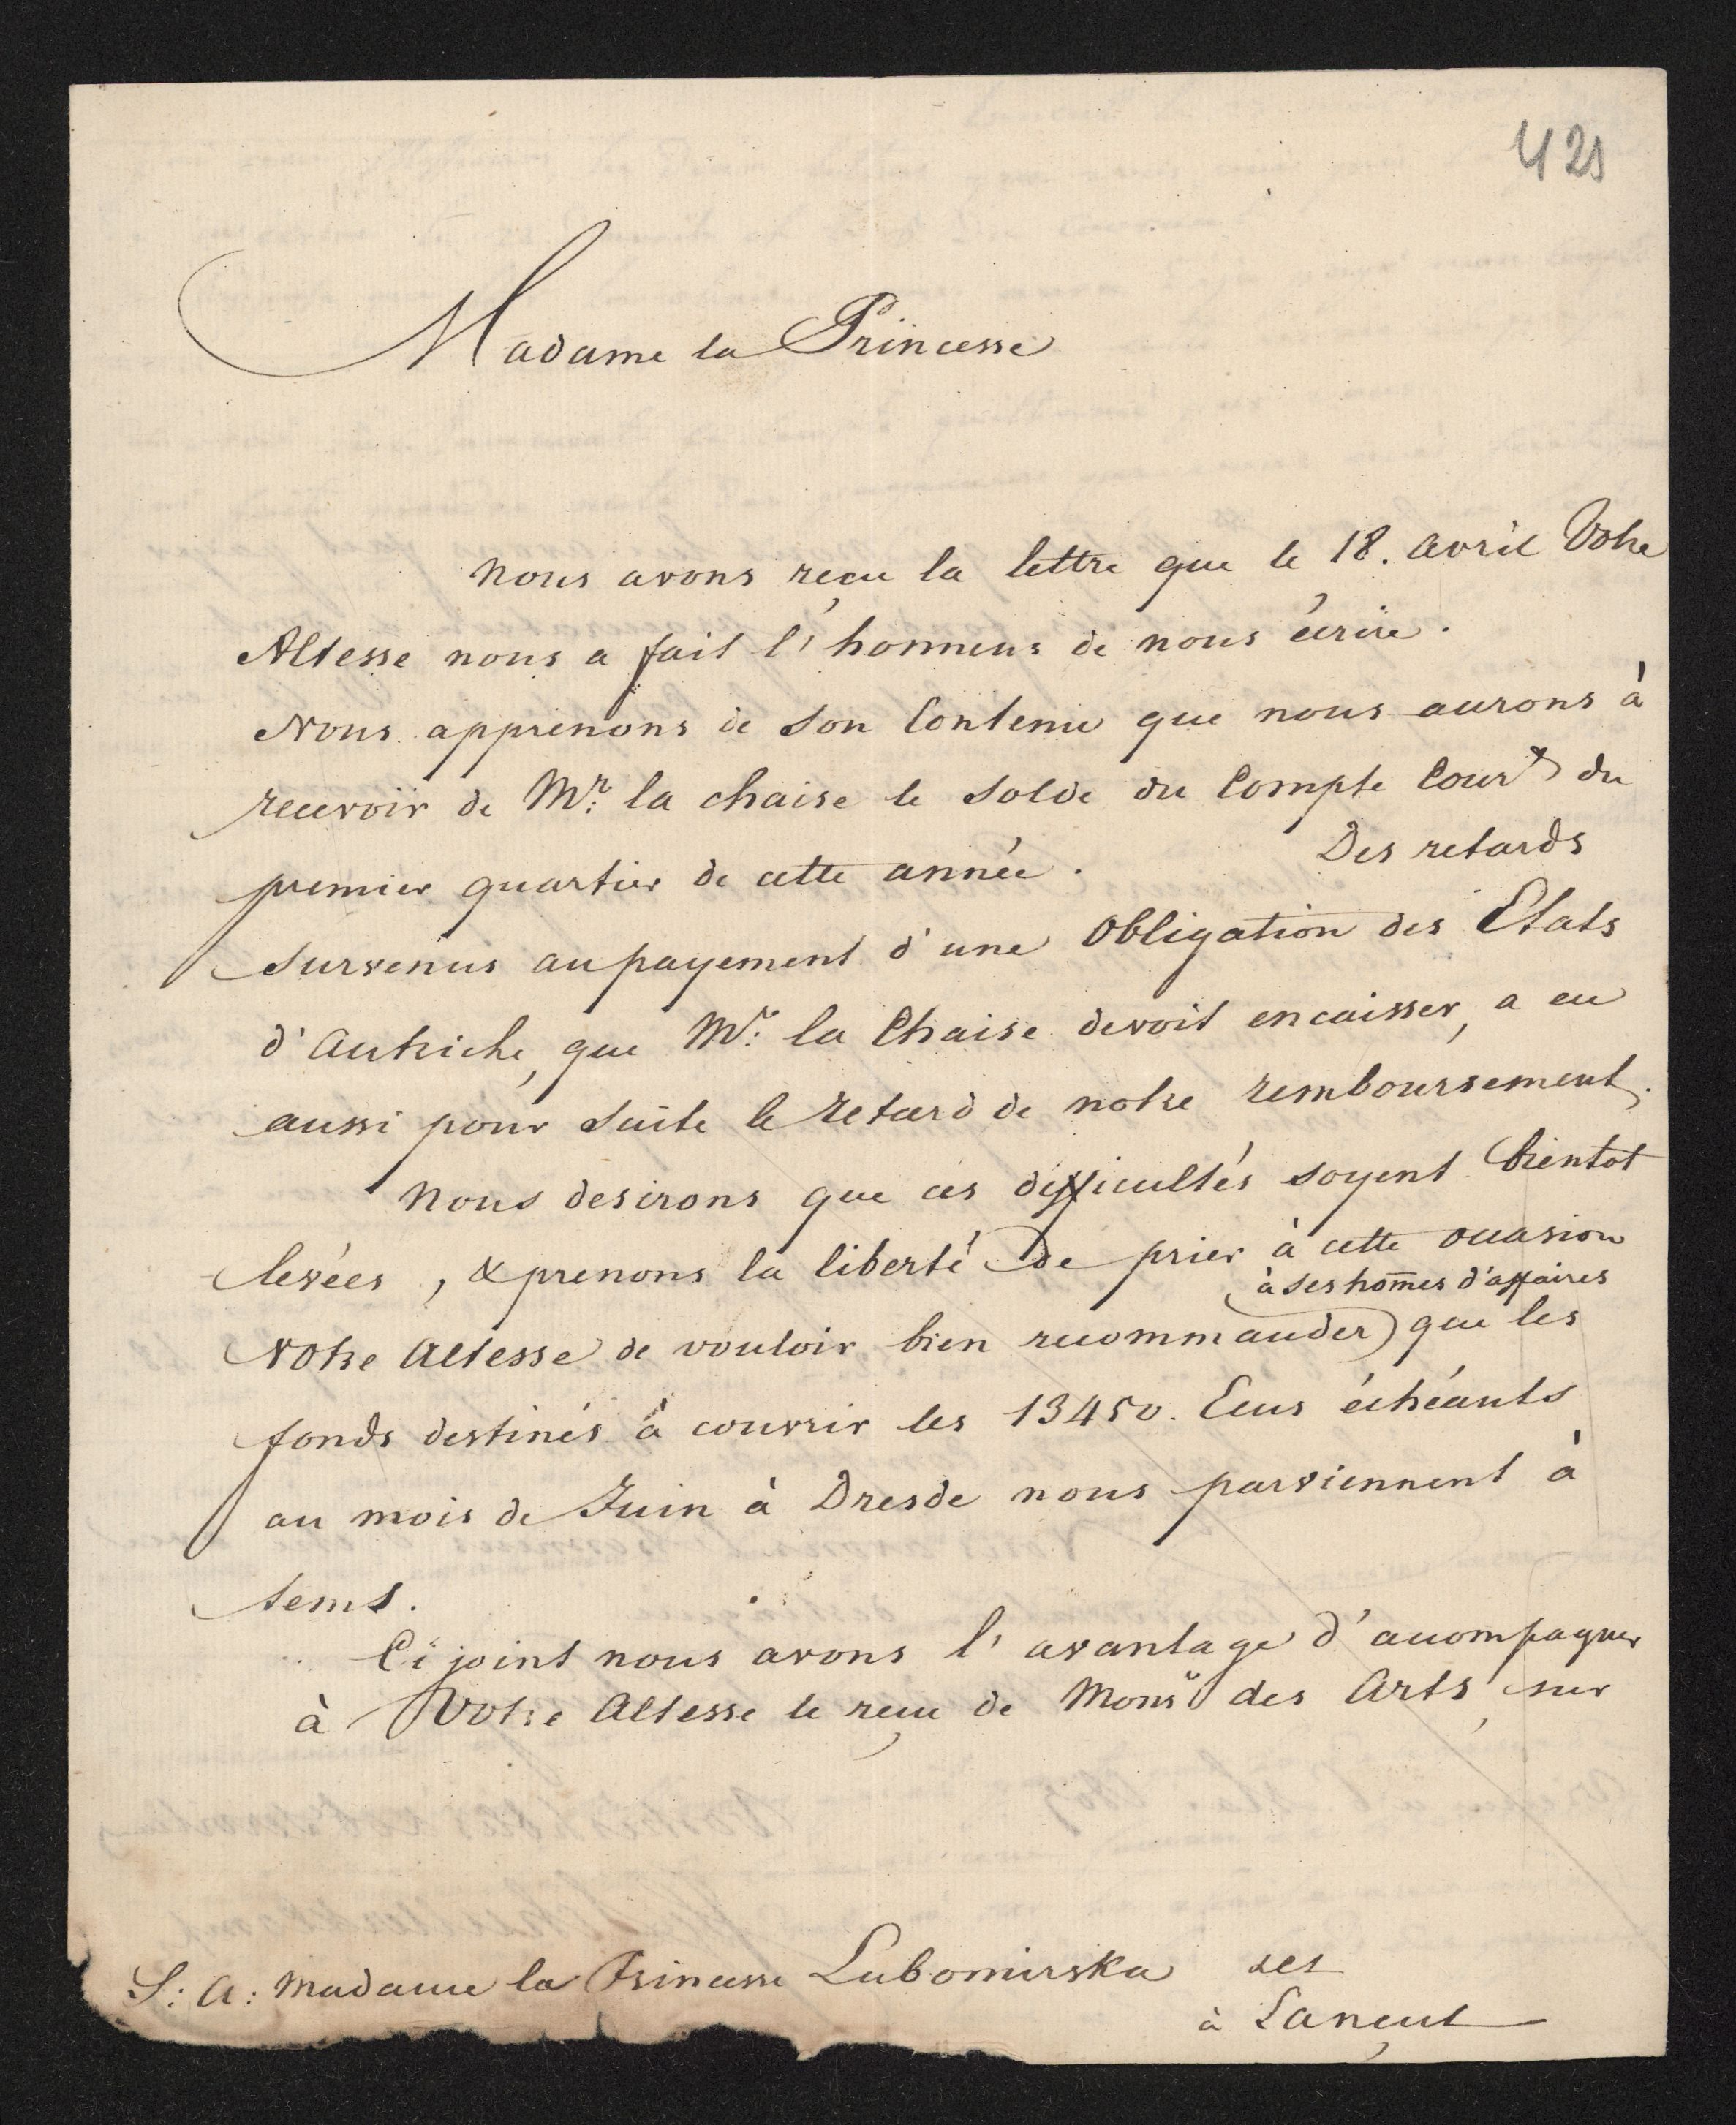 421
Madame la Princesse
nous avons reçu la lettre que le 18. avril Votre
Altesse nous a fait l'honneur de nous écrire.
Nous apprenons de son Contenu que nous aurons à
recevoir de Mr: la chaise le solde du Compte Court du
premier quartier de cette année. Des retards
survenus au payement d'une Obligation des Etats
d'Autriche, que Mr: la Chaise devoit encaisser, a eu
aussi pour suite le retard de notre remboursement.
Nous desirons que ces difficultés soyent bientot
levées, & prenons la liberté de prier à cette occasion
à ses hom̄es d'affaires
Votre Altesse de vouloir bien recommander que les
fonds destinés à couvrir les 13450. Ecus échéants
au mois de Juin à Dresde nous parviennent à
tems.
Ci joint nous avons l'avantage d'accompagner
à Votre Altesse le reçu de Monsr des Arts, sur
S: A: Madame la Princesse Lubomirska
à Lançut